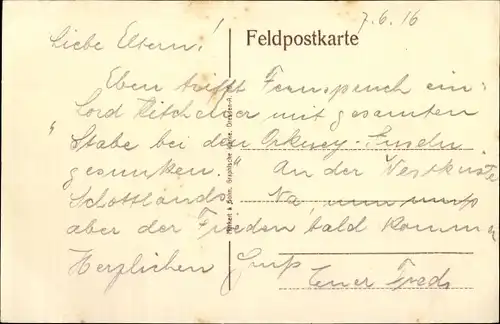 7.6.16
Feldpostkarte
Liebe Eltern!
Eben trifft Fernspruch ein:
"Lord Kitchener mit gesamten
Stabe bei den Orkney-Inseln
gesunken." An der Westküste
Schottlands. Na, nun muß
aber der Frieden bald kommen
Herzlichen Gruß
Euer Fred